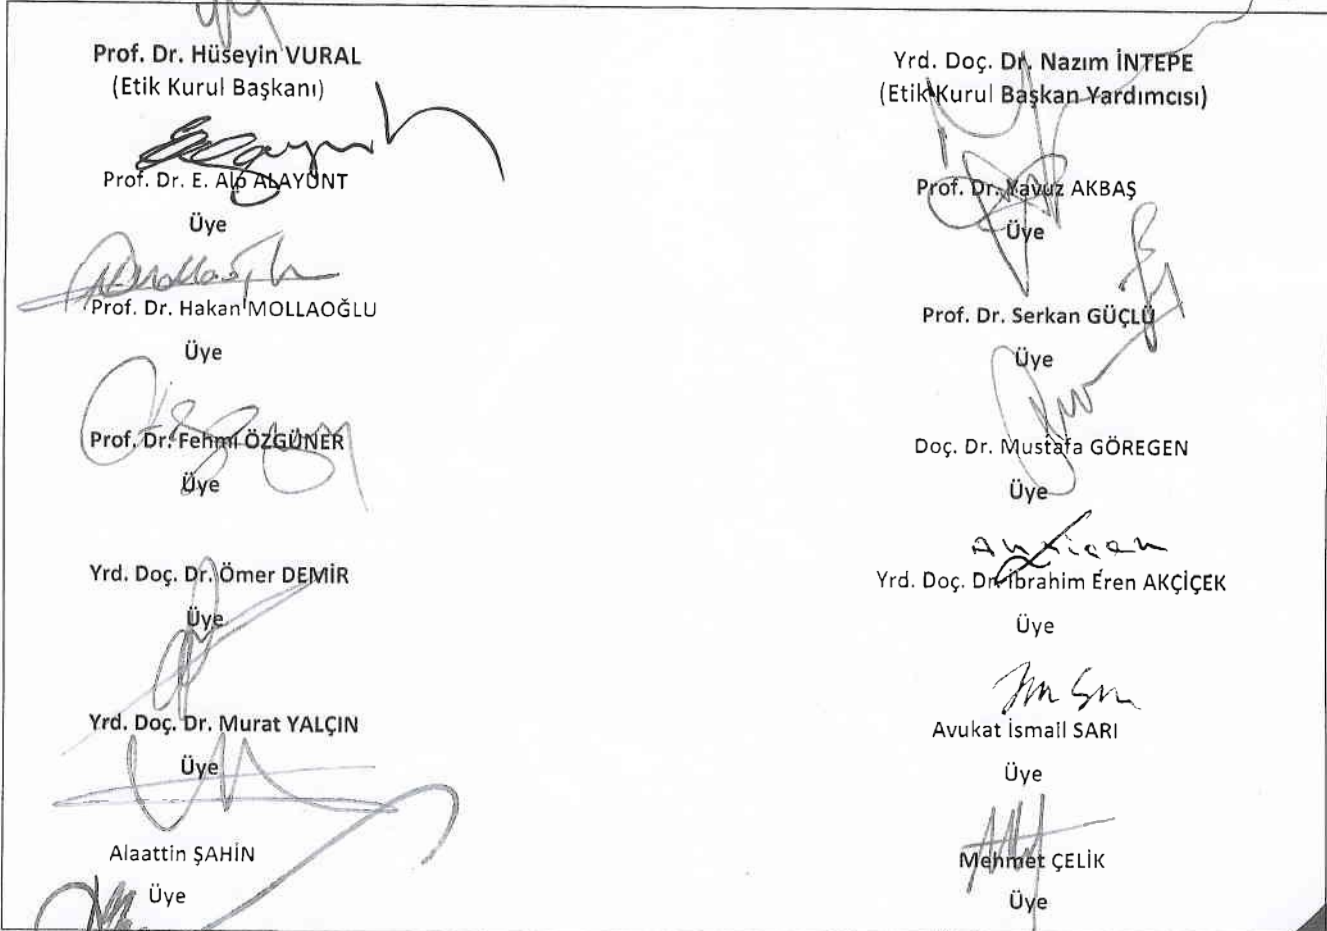 Prof. Dr. Hüseyin VURAL
(Etik Kurul Başkanı)
Prof. Dr. E. Alp ALAYUNT
Üye
Prof. Dr. Hakan MOLLAOĞLU
Üye
Prof. Dr. Fehmi ÖZGÜNER
Üye
Yrd. Doç. Dr. Ömer DEMİR
Üye
Yrd. Doç. Dr. Murat YALÇIN
Üye
Alaattin ŞAHİN
Üye
Yrd. Doç. Dr. Nazım İNTEPE
(Etik Kurul Başkan Yardımcısı)
Prof. Dr. Yavuz AKBAŞ
Üye
Prof. Dr. Serkan GÜÇLÜ
Üye
Doç. Dr. Mustafa GÖREGEN
Üye
Yrd. Doç. Dr. İbrahim Eren AKÇİÇEK
Üye
Avukat İsmail SARI
Üye
Mehmet ÇELİK
Üye